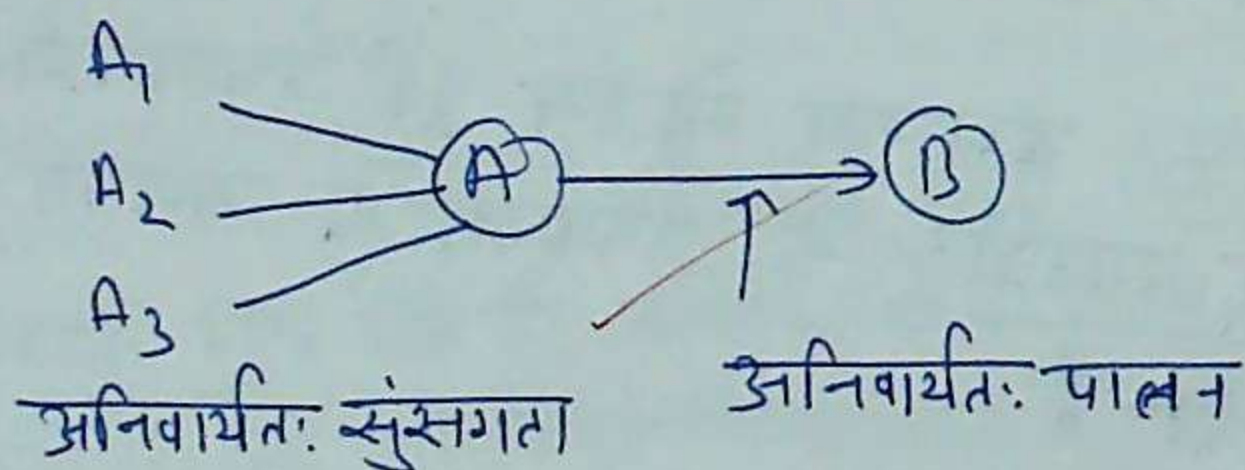 A1
A2
A3
A
B
अनिवार्यतः सुंसगता
अनिवार्यतः पालन